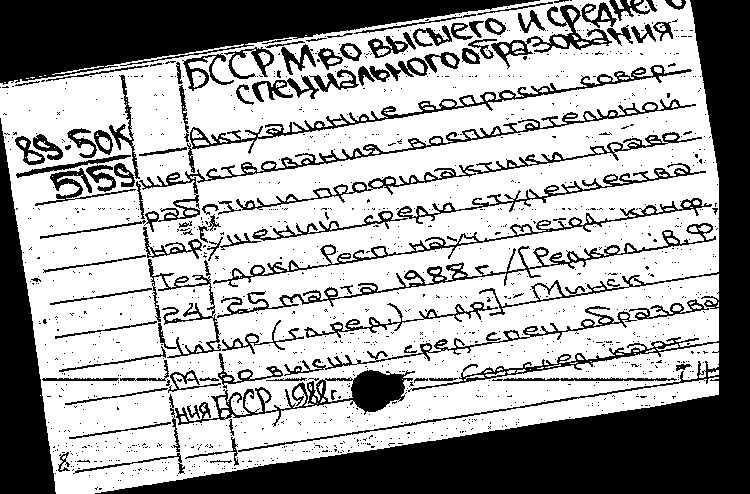 БССР, М-во высшего и среднего
специального образования
89-50К
5159
Актуальные вопросы совер-
шенствования воспитательной
работы и профилактики право-
нарушений среди студенчества:
Тез. докл. Респ. науч.-метод. конф.,
24-25 марта 1988 г. / [Редкол.: В.Ф.
Чигир (гл. ред.) и др.]. - Минск:
М-во высш. и сред. спец. образова
ния БССР, 1988г.
См. след. карт.
8